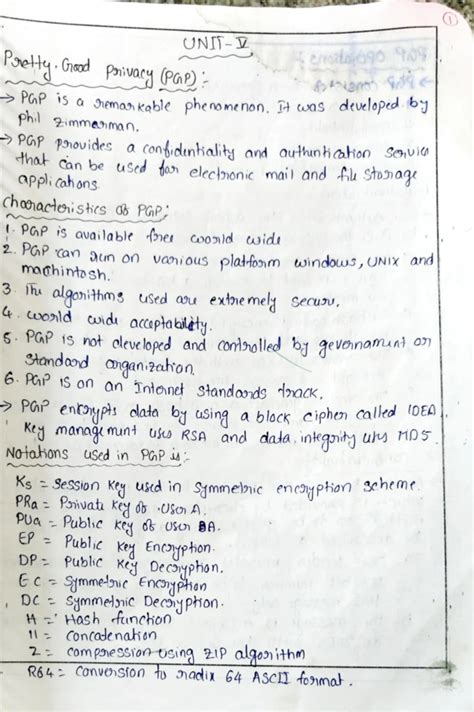 1
UNIT-V
Pretty Good Privacy (PGP):
→ PGP is a remarkable phenomenon. It was developed by
phil zimmerman.
→ PGP provides a confidentiality and authuntication service
that can be used for electronic mail and file storage
applications.
Characteristics of PGP:
1. PGP is available free world wide
2. PGP can run on various platform windows, UNIX and
machintosh.
3. The algorithms used are extremely secure.
4. world wide acceptability.
5. PGP is not developed and controlled by government or
standard organization.
6. PGP is on an Internet standards track.
→ PGP enkrypts data by using a block cipher called IDEA
key management uses RSA and data, integrity uses MD5.
Notations used in PGP is:
Ks = Session key used in symmetric encryption scheme.
PRa = Private key of User A.
PUa = Public key of User A.
EP = Public key Encryption.
DP = Public key Decryption.
EC = Symmetric Encryption
DC = Symmetric Decryption.
H = Hash function
|| = Concatenation
Z = compression using ZIP algorithm
R64 = Conversion to radix 64 ASCII format.